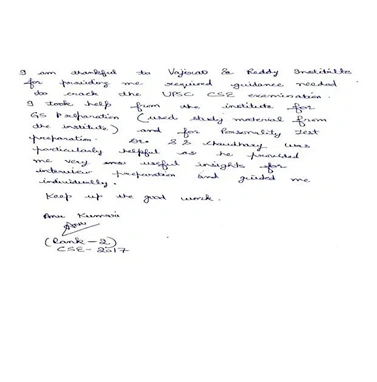 I am thankful to Vajirao & Reddy Institute
for providing me required guidance needed
to crack the UPSC CSE examination.
I took help from the institute for
GS Preparation (used study material from
the institute) and for Personality Test
preparation. Dr. S S Chaudhary was
particularly helpful as he provided
me very useful insights for
interview preparation and guided me
individually.
Keep up the good work.
Anu Kumari
Anu
(Rank-2)
CSE-2017